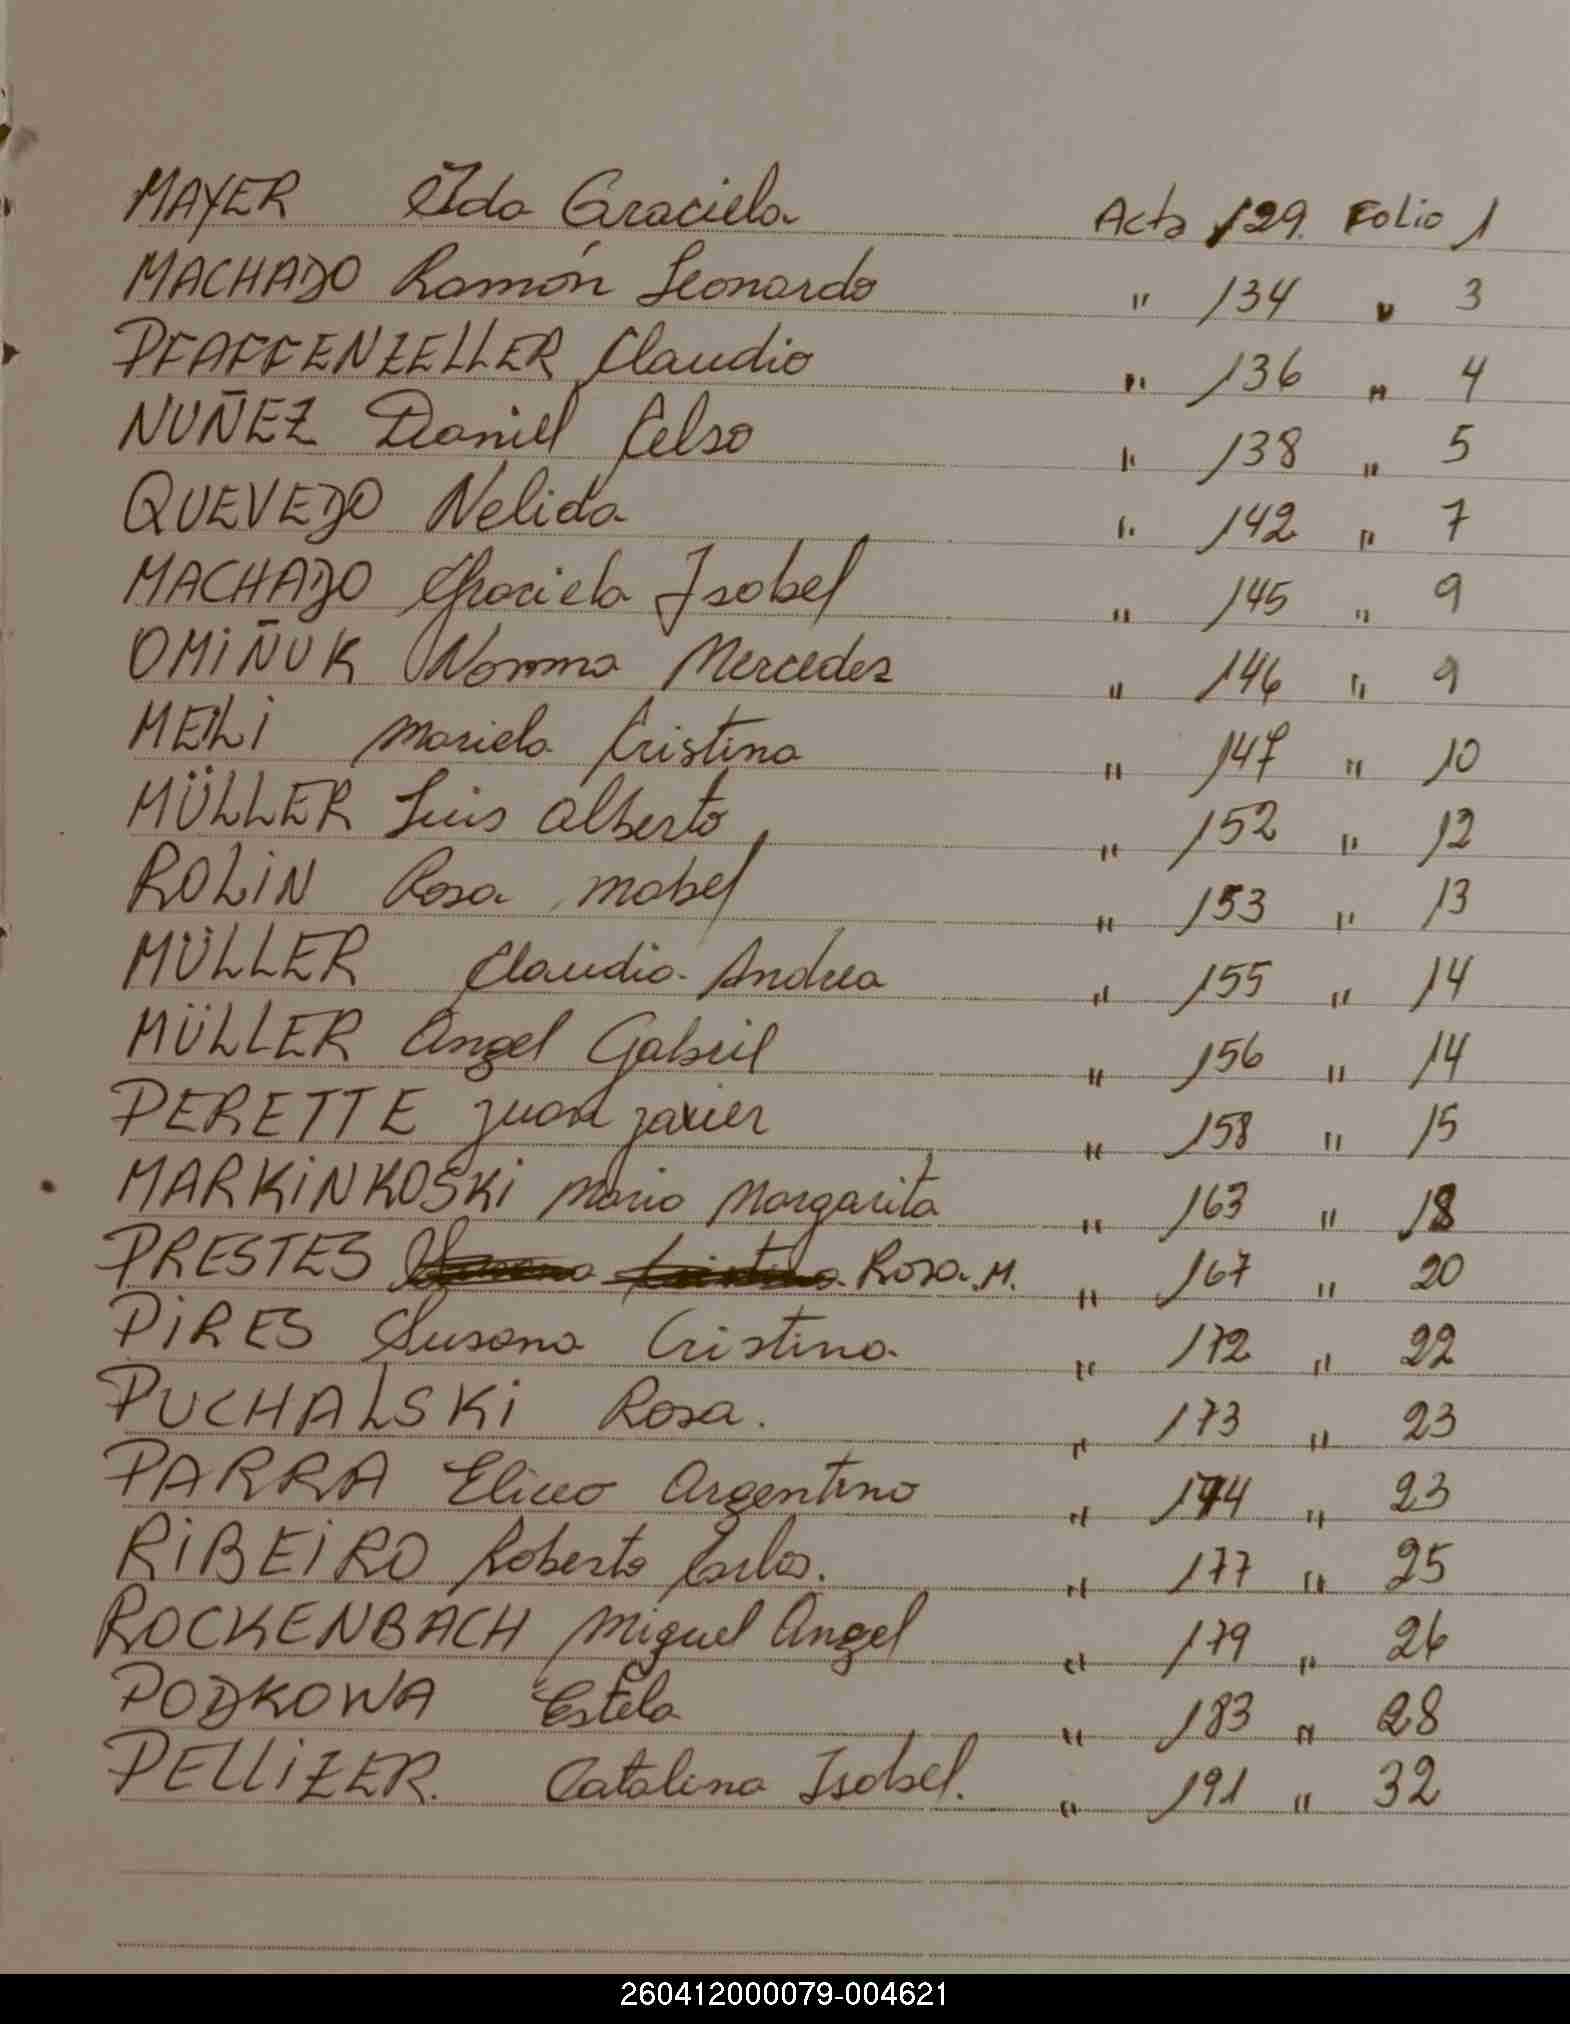 MAYER Ilda Graciela Acta 129. Folio 1
MACHADO Ramón Leonardo " 134 " 3
PFAFFENZELLER Claudio " 136 " 4
NUÑEZ Daniel Celso " 138 " 5
QUEVEDO Nelida " 142 " 7
MACHADO Graciela Isabel " 145 " 9
OMIÑUK Norma Mercedes " 146 " 9
MELI Mariela Cristina " 147 " 10
MÜLLER Luis Alberto " 152 " 12
ROLIN Rosa Mabel " 153 " 13
MÜLLER Claudia Andrea " 155 " 14
MÜLLER Angel Gabriel " 156 " 14
PERETTE Juan Javier " 158 " 15
MARKINKOSKI Maria Margarita " 163 " 18
PRESTES Rosa M. " 167 " 20
PIRES Susana Cristina " 172 " 22
PUCHALSKI Rosa. " 173 " 23
PARRA Eliceo Argentino " 174 " 23
RIBEIRO Roberto Carlos. " 177 " 25
ROCKENBACH Miguel Angel " 179 " 26
PODKOWA Estela " 183 " 28
PELLIZER. Catalina Isabel. " 191 " 32
260412000079-004621